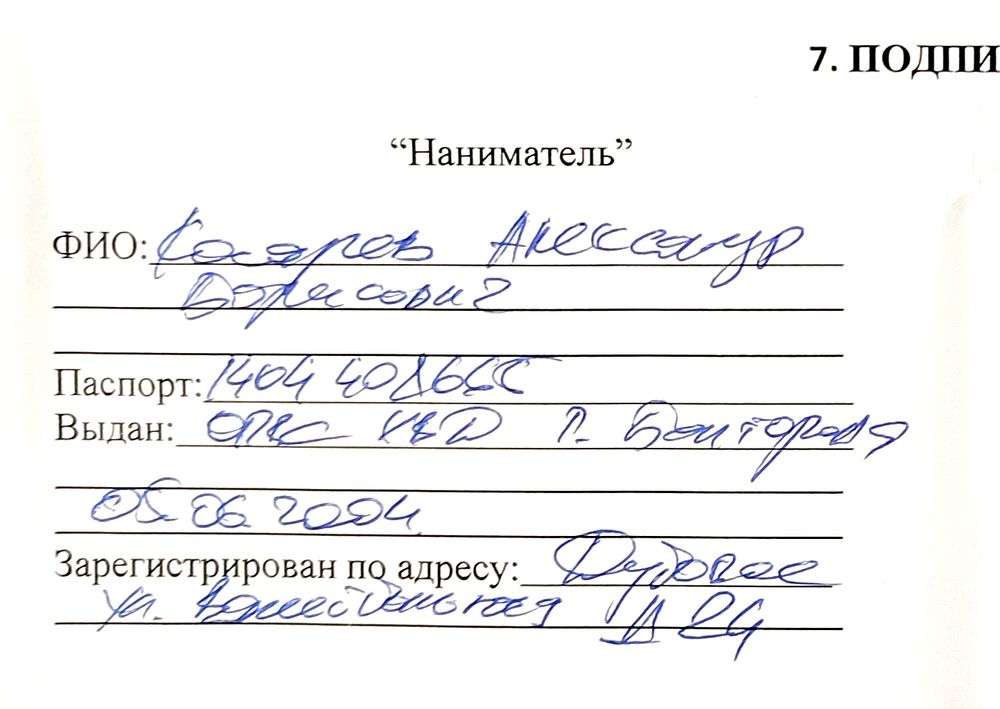 7. ПОДПИ
“Наниматель”
ФИО: Косарев Александр
Борисович
Паспорт: 1404 408665
Выдан: ОПВС УВД г. Белгорода
05.06.2004
Зарегистрирован по адресу: Дубовое
ул. д 24